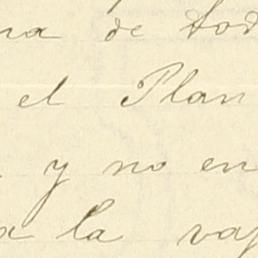 na de tod
el Plan
y no en
a la vap